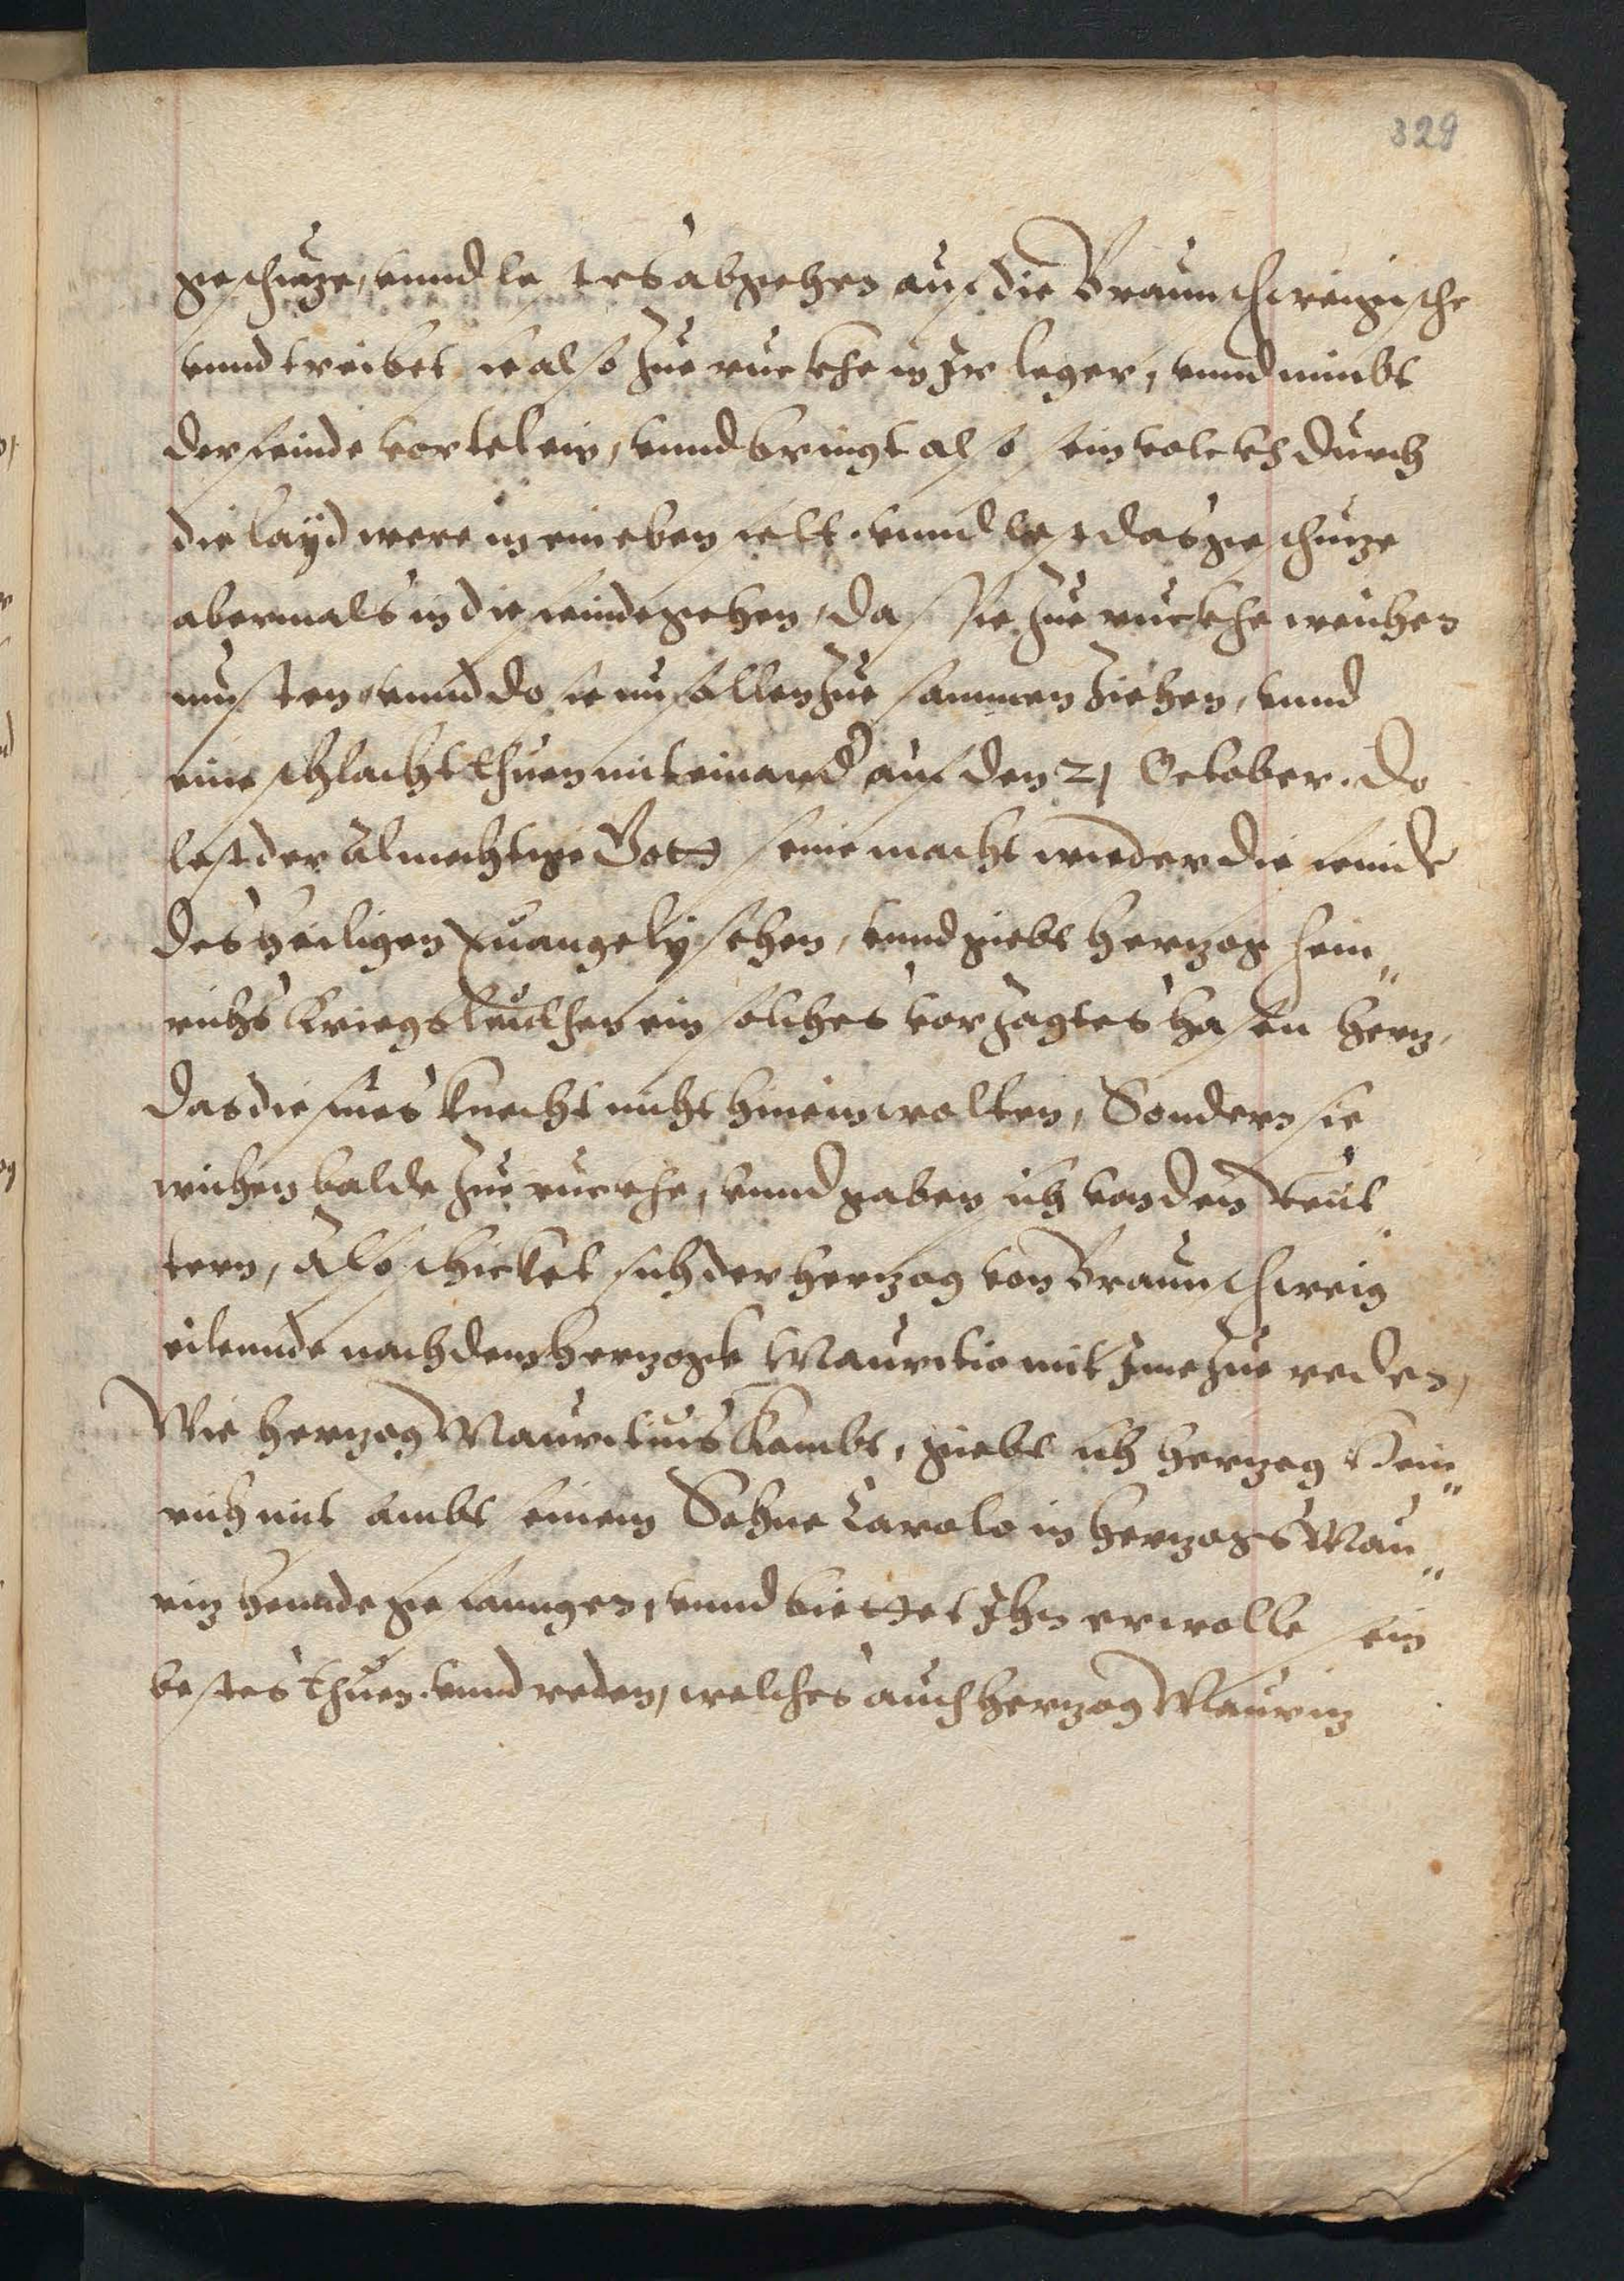 329
geschuze, vnnd lest es abgehen auf die Braunschweigische
vnnd treibet sie also zue ruckhe in Ir leger, vnnd nimbt
der feinde vortel ein, vnnd bringt also sein volckh durch
die layd were in ein eben felt. vnnd lest das geschuze
abermals in die feinde gehen, das sie zue ruckhe weichen
musten, vnnd do sie nu sollen zue sammen ziehen, vnnd
eine schlacht thuen mit einand auf den 21 October. do
lest der Almechtige Gott seine macht wieder die feinde
des heiligen Euangely sehen, vnnd giebt herzog Hein„
richs Kriegsleuthen ein solches vorzagtes hasen herz,
das die fues knecht nicht hinein wolten, Sondern sie
wichen balde zue ruckhe, vnnd gaben sich von den Reut„
tern, Also schicket sich der herzog von Braunschweig
eilennde nach dem herzogk Mauritio mit Ime zue reden,
Wie herzog Mauritius kombt, giebt sich herzog Hein„
rich mit sambt seinem Sohne Carolo in herzogs Mau„
riz hennde gefanngen, vnnd biettet Ihn er wolle sein
bestes thuen. vnnd reden, welches auch herzog Mauriz